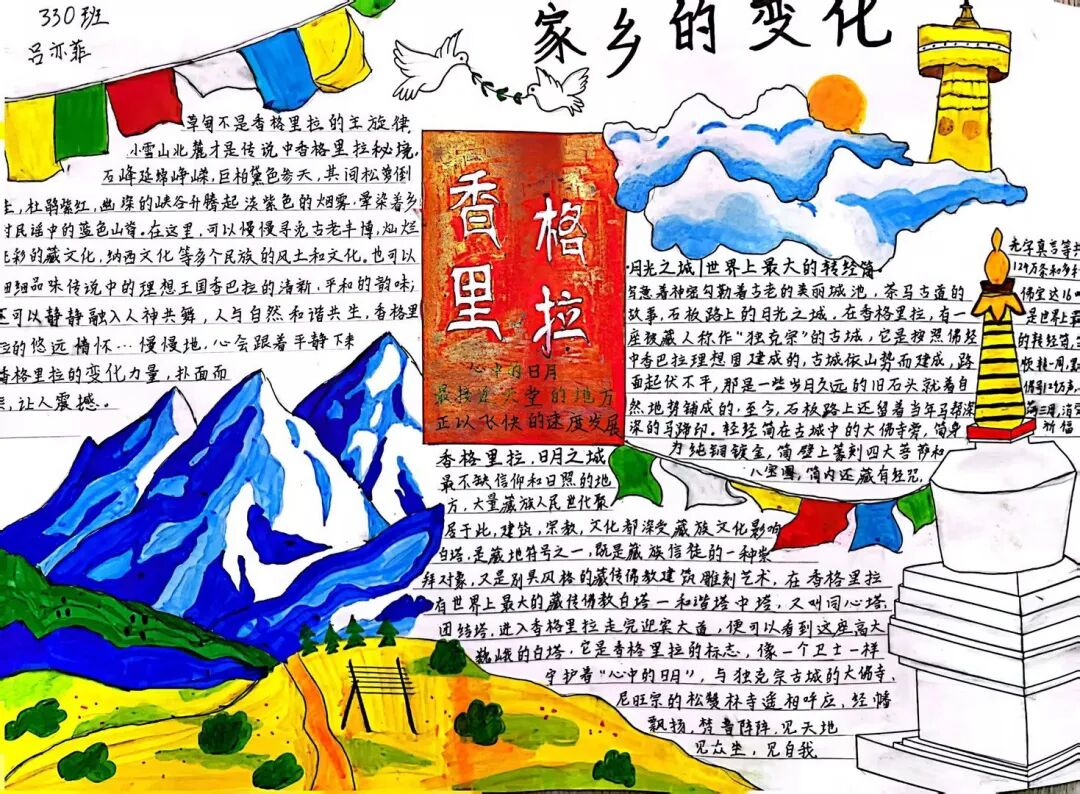 330班
吕亦菲
家乡的变化
草甸不是香格里拉的主旋律,
小雪山北麓才是传说中香格里拉秘境,
石峰延绵峥嵘,巨柏黛色参天,其间松萝倒
生,杜鹃紫红,幽深的峡谷升腾起淡紫色的烟雾,晕染着乡
村民谣中的蓝色山脊.在这里,可以慢慢寻觅古老丰博,灿烂
多彩的藏文化,纳西文化等多个民族的风土和文化,也可以
细细品味传说中的理想王国香巴拉的清新,平和的韵味;
还可以静静融入人神共舞,人与自然和谐共生,香格里
拉的悠远情怀…慢慢地,心会跟着平静下来
香格里拉的变化力量,扑面而
来,让人震撼。
香格
里拉
心中的日月
最接近天堂的地方
正以飞快的速度发展
香格里拉,日月之城
最不缺信仰和日照的地
方,大量藏族人民世代聚
居于此,建筑,宗教,文化都深受藏族文化影响
白塔,是藏地符号之一,既是藏族信徒的一种崇
拜对象,又是别具风格的藏传佛教建筑雕刻艺术,在香格里拉
有世界上最大的藏传佛教白塔一和谐塔中塔,又叫同心塔,
团结塔,进入香格里拉走完迎宾大道,便可以看到这座高大
巍峨的白塔,它是香格里拉的标志,像一个卫士一样
守护着"心中的日月",与独克宗古城的大佛寺,
尼旺宗的松赞林寺遥相呼应,经幡
飘扬,梵音阵阵,见天地
见众生,见自我
月光之城|世界上最大的转经筒
着神密勾勒着古老的美丽城池,茶马古道的
故事,石板路上的月光之城,在香格里拉,有一
座被藏人称作"独克宗"的古城,它是按照佛经
中香巴拉理想国建成的,古城依山势而建成,路
面起伏不平,那是一些岁月久远的旧石头就着自
然地势铺成的,至今,石板路上还留着当年马帮深
深的马蹄印。转经筒在古城中的大佛寺旁,筒身
为纯铜镀金,筒壁上篆刻四大菩萨和
八宝图,筒内还藏有经咒,
字真言等共
124万条和多
佛宝这16吨
是世界上最
的转经筒,
祈福